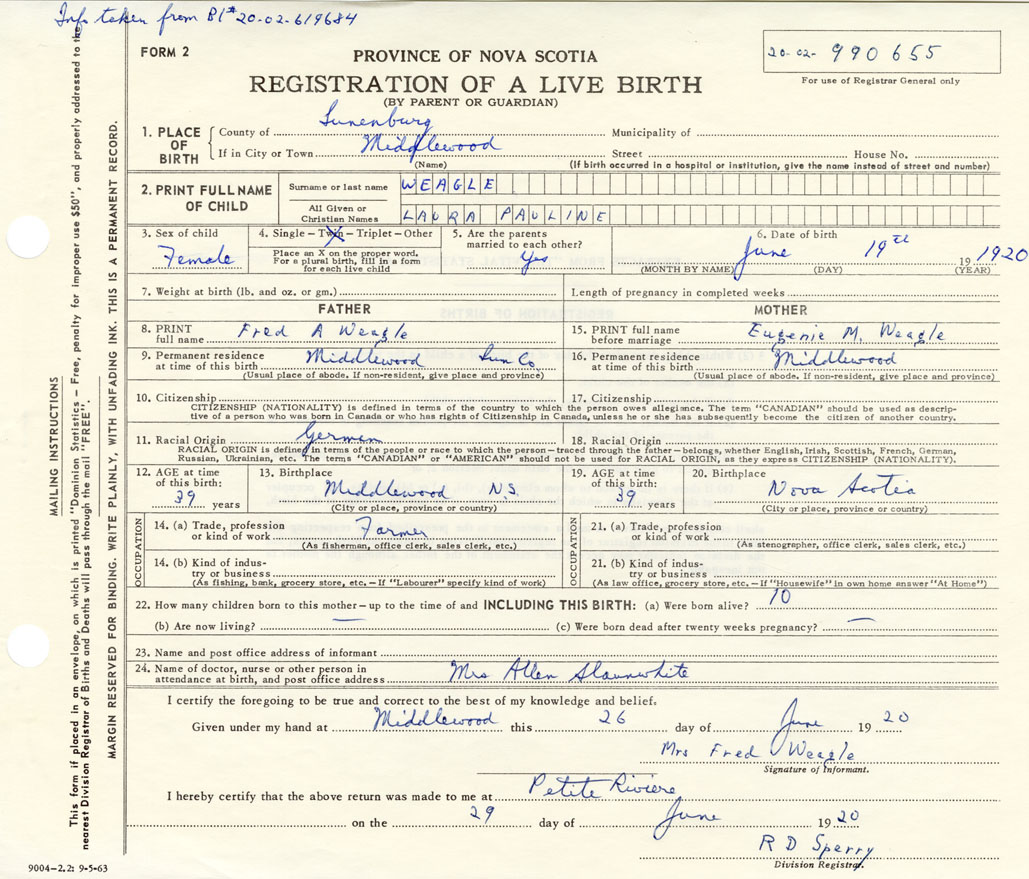 Info taken from Bl# 20-02-619684
FORM 2
20-02- 990655
PROVINCE OF NOVA SCOTIA
REGISTRATION OF A LIVE BIRTH
(BY PARENT OR GUARDIAN)
For use of Registrar General only
1. PLACE OF BIRTH
County of Lunenburg Municipality of
If in City or Town Middlewood Street House No.
(Name) (If birth occurred in a hospital or institution, give the name instead of street and number)
2. PRINT FULL NAME OF CHILD
Surname or last name WEAGLE
All Given or Christian Names LAURA PAULINE
3. Sex of child Female
4. Single – Twin – Triplet – Other
Place an X on the proper word.
For a plural birth, fill in a form
for each live child
5. Are the parents
married to each other?
Yes
6. Date of birth
June 19th 19 1920
(MONTH BY NAME) (DAY) (YEAR)
7. Weight at birth (lb. and oz. or gm.) Length of pregnancy in completed weeks
FATHER MOTHER
8. PRINT full name Fred A Weagle
15. PRINT full name before marriage Eugenie M. Weagle
9. Permanent residence at time of this birth Middlewood Lun Co
(Usual place of abode. If non-resident, give place and province)
16. Permanent residence at time of this birth Middlewood
(Usual place of abode. If non-resident, give place and province)
10. Citizenship 17. Citizenship
CITIZENSHIP (NATIONALITY) is defined in terms of the country to which the person owes allegiance. The term "CANADIAN" should be used as descrip-
tive of a person who was born in Canada or who has rights of Citizenship in Canada, unless he or she has subsequently become the citizen of another country.
11. Racial Origin German 18. Racial Origin
RACIAL ORIGIN is defined in terms of the people or race to which the person – traced through the father – belongs, whether English, Irish, Scottish, French, German,
Russian, Ukrainian, etc. The terms "CANADIAN" or "AMERICAN" should not be used for RACIAL ORIGIN, as they express CITIZENSHIP (NATIONALITY).
12. AGE at time
of this birth:
39 years
13. Birthplace
Middlewood N.S.
(City or place, province or country)
19. AGE at time
of this birth:
39 years
20. Birthplace
Nova Scotia
(City or place, province or country)
OCCUPATION
14. (a) Trade, profession
or kind of work Farmer
(As fisherman, office clerk, sales clerk, etc.)
14. (b) Kind of indus-
try or business
(As fishing, bank, grocery store, etc. – If "Labourer" specify kind of work)
OCCUPATION
21. (a) Trade, profession
or kind of work
(As stenographer, office clerk, sales clerk, etc.)
21. (b) Kind of indus-
try or business
(As law office, grocery store, etc. – If "Housewife" in own home answer "At Home")
22. How many children born to this mother – up to the time of and INCLUDING THIS BIRTH: (a) Were born alive? 10
(b) Are now living? — (c) Were born dead after twenty weeks pregnancy? —
23. Name and post office address of informant
24. Name of doctor, nurse or other person in
attendance at birth, and post office address Mrs Allen Slaunwhite
I certify the foregoing to be true and correct to the best of my knowledge and belief.
Given under my hand at Middlewood this 26 day of June 19 20
Mrs Fred Weagle
Signature of Informant.
I hereby certify that the above return was made to me at Petite Riviere
on the 29 day of June 19 20
R D Sperry
Division Registrar.
9004-2.2: 9-5-63
MAILING INSTRUCTIONS
This form if placed in an envelope, on which is printed "Dominion Statistics – Free, penalty for improper use $50", and properly addressed to the
nearest Division Registrar of Births and Deaths will pass through the mail "FREE".
MARGIN RESERVED FOR BINDING. WRITE PLAINLY, WITH UNFADING INK. THIS IS A PERMANENT RECORD.